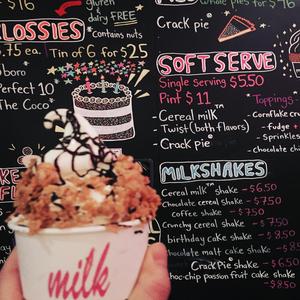 $16
gluten
dairy FREE
LOSSIES
contains nuts
.75 ea. Tin of 6 for $25
boro
Perfect 10
The Coco
Whole pies for $16
Crack pie
SOFT SERVE
Single serving $5.50
Pint $11
Cereal milk™
Twist (both flavors)
Crack pie
Toppings
Cornflake cru
fudge
Sprinkles
chocolate chi
MILKSHAKES
Cereal milk™ shake - $6.50
Chocolate cereal shake - $7.50
coffee shake - $7.50
Crunchy cereal shake - $7.50
birthday cake shake - $8.50
chocolate malt cake shake - $8.50
Crack Pie shake - $6.50
choc-chip passion fruit cake shake
- $8.50
milk